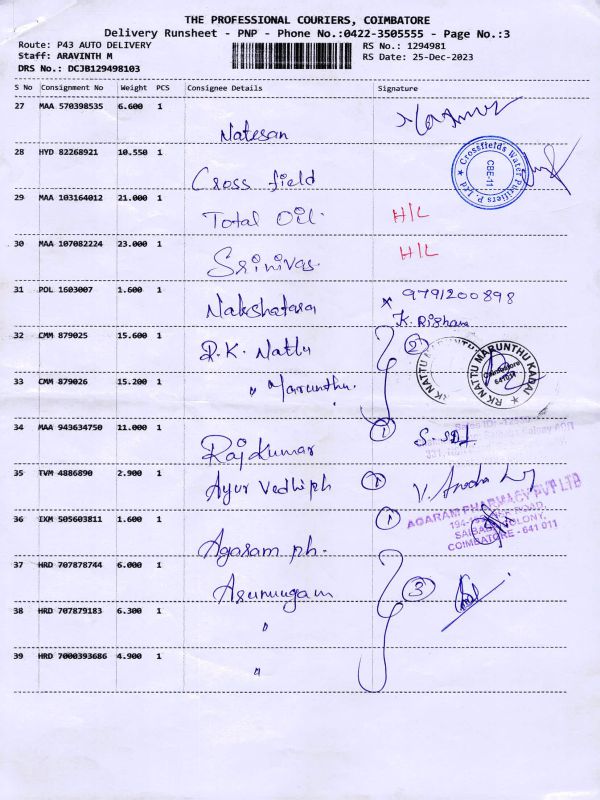 THE PROFESSIONAL COURIERS, COIMBATORE
Delivery Runsheet - PNP - Phone No.:0422-3505555 - Page No.:3
Route: P43 AUTO DELIVERY
RS No.: 1294981
Staff: ARAVINTH M
RS Date: 25-Dec-2023
DRS No.: DCJB129498103
S No Consignment No Weight PCS Consignee Details Signature
27 MAA 570398535 6.600 1
Natesan
28 HYD 82268921 10.550 1
Cross field
Crossfields Water Purifiers P. Ltd
CBE-11
29 MAA 103164012 21.000 1
Total Oil. H/L
30 MAA 107082224 23.000 1 H/L
Srinivas.
31 POL 1603007 1.600 1
9791200898
Nakshatara
32 CMM 879025 15.600 1
R.K. Nattu 2
RK NATTU MARUNTHU KADAI
Coimbatore
641011
33 CMM 879026 15.200 1
" Marunthu.
34 MAA 943634750 11.000 1 1
Rajkumar
35 TVM 4886890 2.900 1
Ayur Vedhi ph 1
36 IXM 505603811 1.600 1 1
AGARAM PHARMACY PVT LTD
COIMBATORE - 641 011
Agaram ph.
37 HRD 707878744 6.000 1
Arumugam 3
38 HRD 707879183 6.300 1
"
39 HRD 7000393686 4.900 1
"